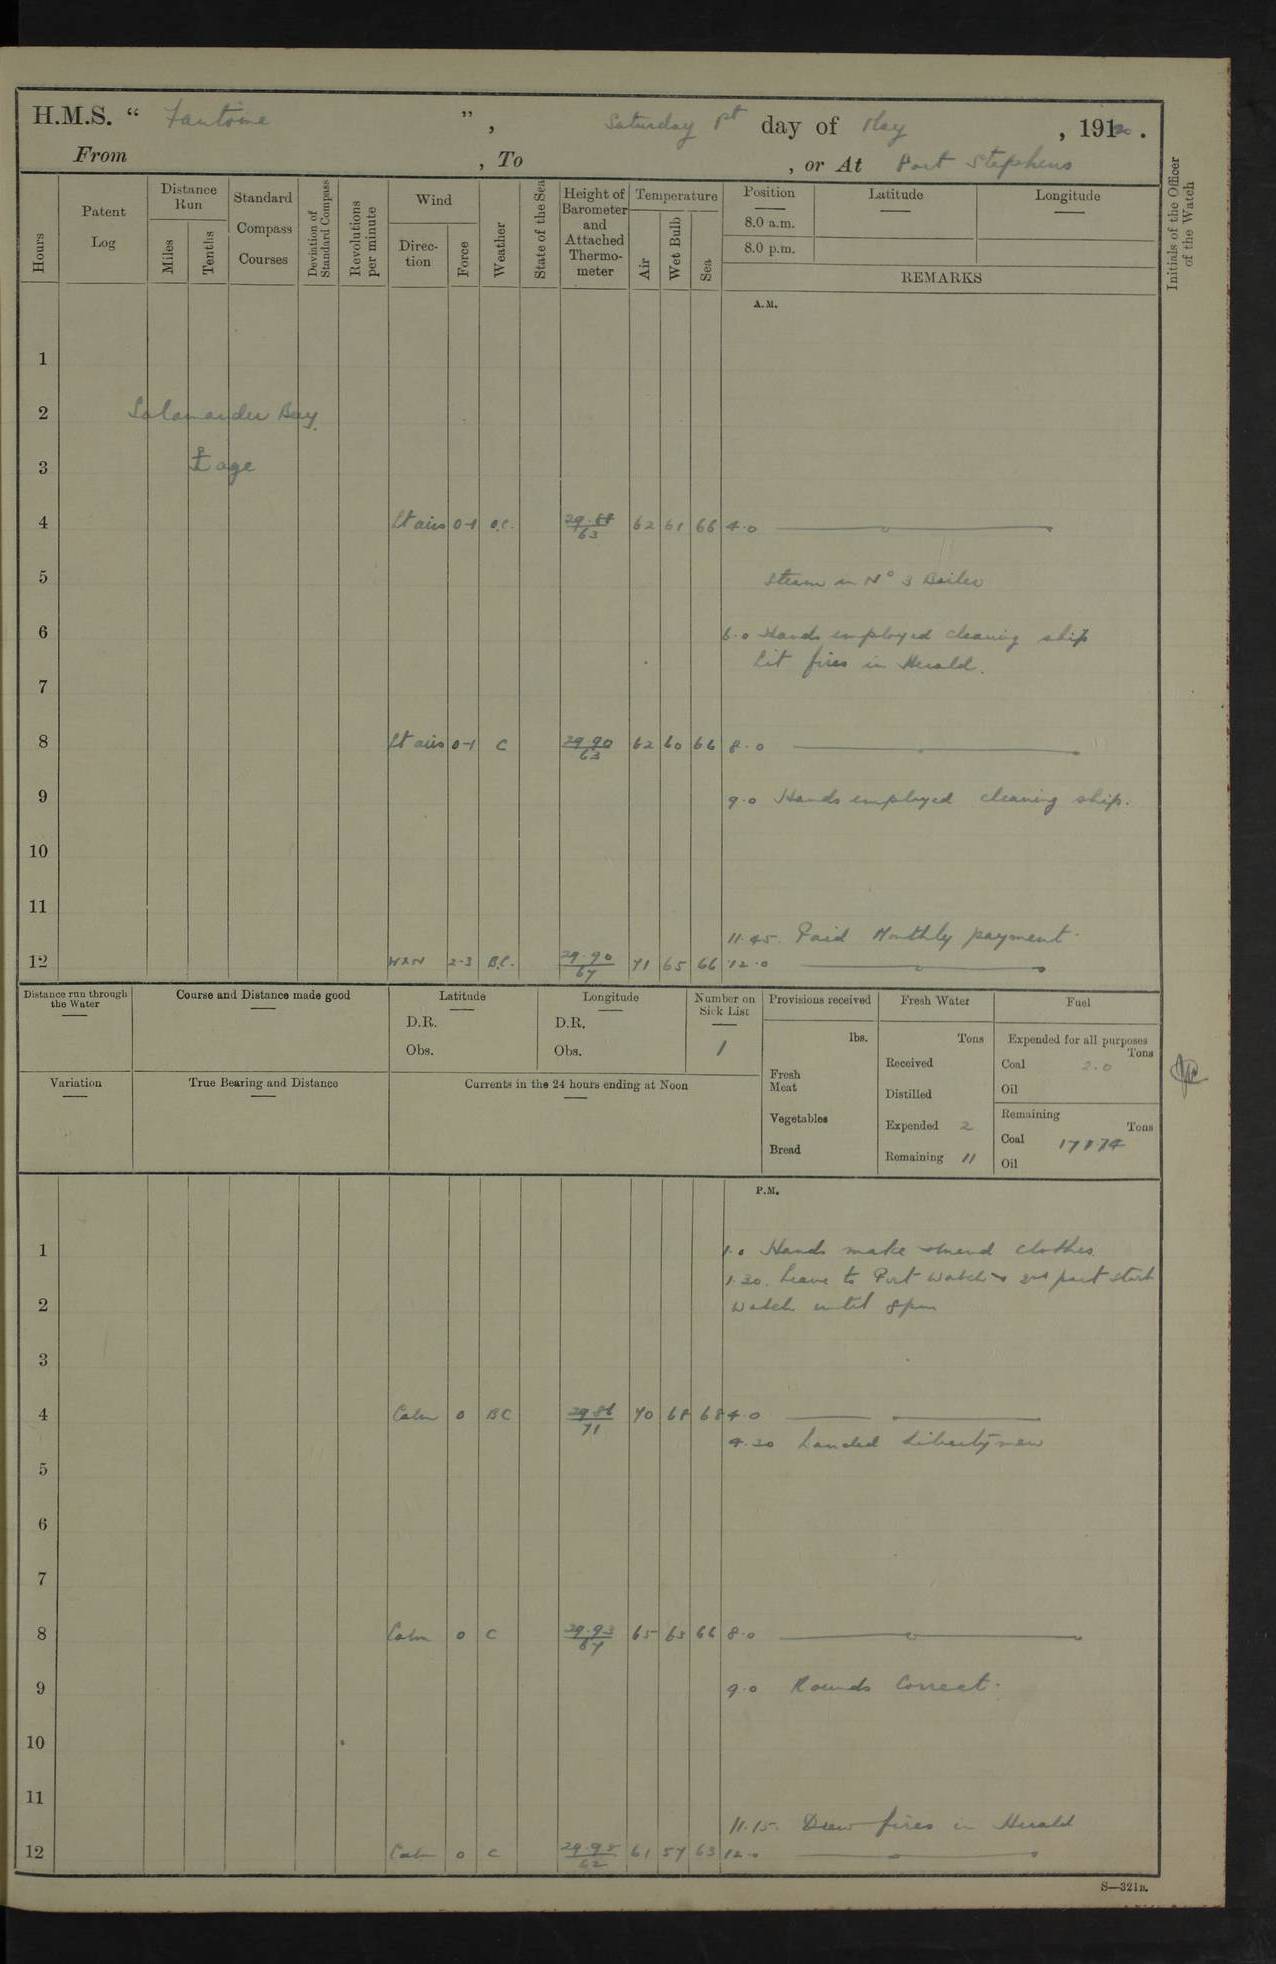 H.M.S. “ Fantome ” , Saturday 1st day of May , 1920 .
From , To , or At Port Stephens
Hours
Patent Log
Distance Run
Miles
Tenths
Standard Compass Courses
Deviation of Standard Compass
Revolutions per minute
Wind
Direc-tion
Force
Weather
State of the Sea
Height of Barometer and Attached Thermo-meter
Temperature
Air
Wet Bulb
Sea
Position
8.0 a.m.
8.0 p.m.
Latitude
Longitude
REMARKS
Initials of the Officer of the Watch
A.M.
1
2 Salamander Bay
3 age
4 Lt airs 0-1 o.c. 63 62 61 66 4.0
5 Steam in No 3 Boiler
6 6.0 Hands employed cleaning ship
Lit fires in Herald.
7
8 Lt airs 0-1 C 29.90 63 62 60 66 8.0
9 9.0 Hands employed cleaning ship.
10
11
11.45. Paid Monthly payment.
12 WxN 2-3 B.C. 29.90 67 71 65 66 12.0
Distance run through the Water
Course and Distance made good
Latitude
D.R.
Obs.
Longitude
D.R.
Obs.
Number on Sick List
1
Provisions received
lbs.
Fresh Meat
Vegetables
Bread
Fresh Water
Tons
Received
Distilled
Expended 2
Remaining 11
Fuel
Expended for all purposes
Tons
Coal 2.0
Oil
Remaining
Tons
Coal
Oil
Variation
True Bearing and Distance
Currents in the 24 hours ending at Noon
P.M.
1 1.0 Hands make & mend clothes.
1.30. Leave to Port Watch & 2nd part starb
2 Watch until 8pm
3
4 Calm 0 BC 29.86 71 70 68 68 4.0
4.30 Landed Libertymen
5
6
7
8 Calm 0 C 29.93 67 65 63 66 8.0
9 9.0 Rounds Correct.
10
11
11.15. Drew fires in Herald
12 Calm 0 C 29.95 62 61 57 63 12.0
S—321B.